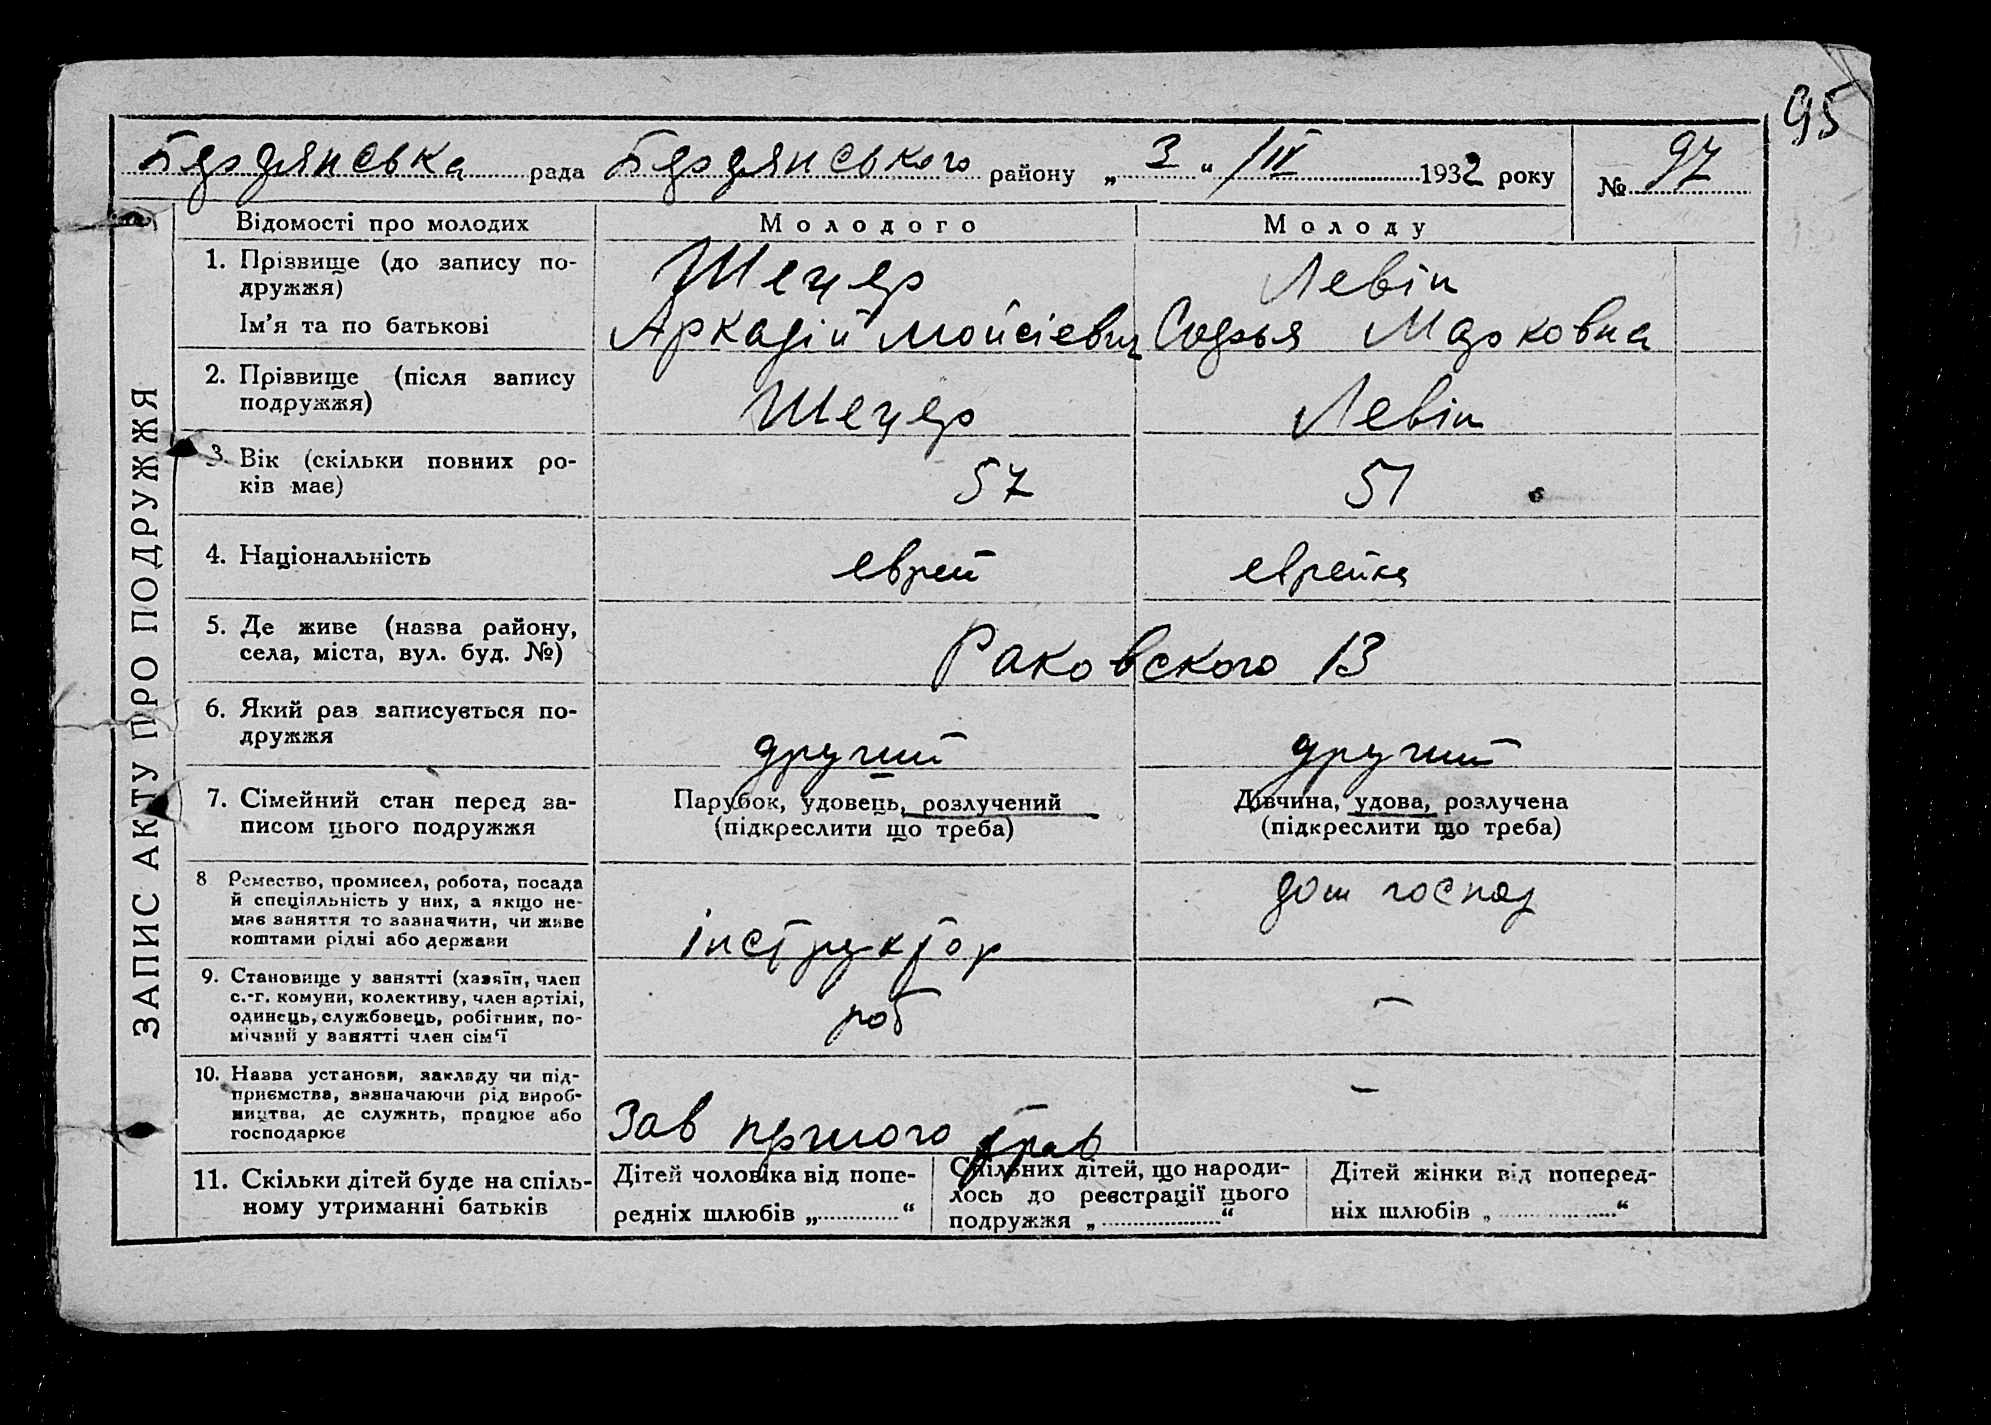 95
Бердянська рада Бердянського району „ 3 “ /IV 1932 року № 97
Відомості про молодих Молодого Молоду
1. Прізвище (до запису по- Шецер Левін
дружжя)
Ім’я та по батькові Аркадій Мойсієвич Софья Марковна
2. Прізвище (після запису Шецер Левін
подружжя)
3. Вік (скільки повних ро- 57 51
ків має)
4. Національність еврей еврейка
5. Де живе (назва району, Раковского 13
села, міста, вул. буд. №)
6. Який раз записується по- другий другий
дружжя
7. Сімейний стан перед за- Парубок, удовець, розлучений Дівчина, удова, розлучена
писом цього подружжя (підкреслити що треба) (підкреслити що треба)
8 Ремество, промисел, робота, посада дом госпо
й спеціяльність у них, а якщо не-
має заняття то зазначити, чи живе інструктор
коштами рідні або держави
9. Становище у занятті (хазяїн, член
с.-г. комуни, колективу, член артілі, роб –
одинець, службовець, робітник, по-
мічний у занятті член сім‘ї
10. Назва установи, закладу чи під- –
приємства, зазначаючи рід вироб-
ництва, де служить, працює або Зав
господарює
11. Скільки дітей буде на спіль- Дітей чоловіка від попе- Спільних дітей, що народи- Дітей жінки від поперед-
ному утриманні батьків редніх шлюбів „ “ лось до реєстрації цього ніх шлюбів „ “
подружжя „ “
ЗАПИС АКТУ ПРО ПОДРУЖЖЯ